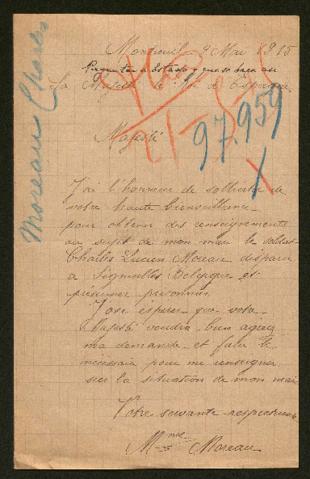 Montreuil 2 Mai 1915
Sa Majesté le Roi de Espagne
Moreau Charles
97.959
X
Majesté
J'ai l'honneur de solliciter de
votre haute bienveillance
pour obtenir des renseignements
au sujet de mon mari le soldat
Charles Lucien Moreau disparu
à Belgique et
présumer prisonnier
J'ose espérer que votre
Majesté voudra bien agréer
ma demande et faire le
nécessaire pour me renseigner
sur la situation de mon mari
Votre servante respectueuse
Mme Moreau